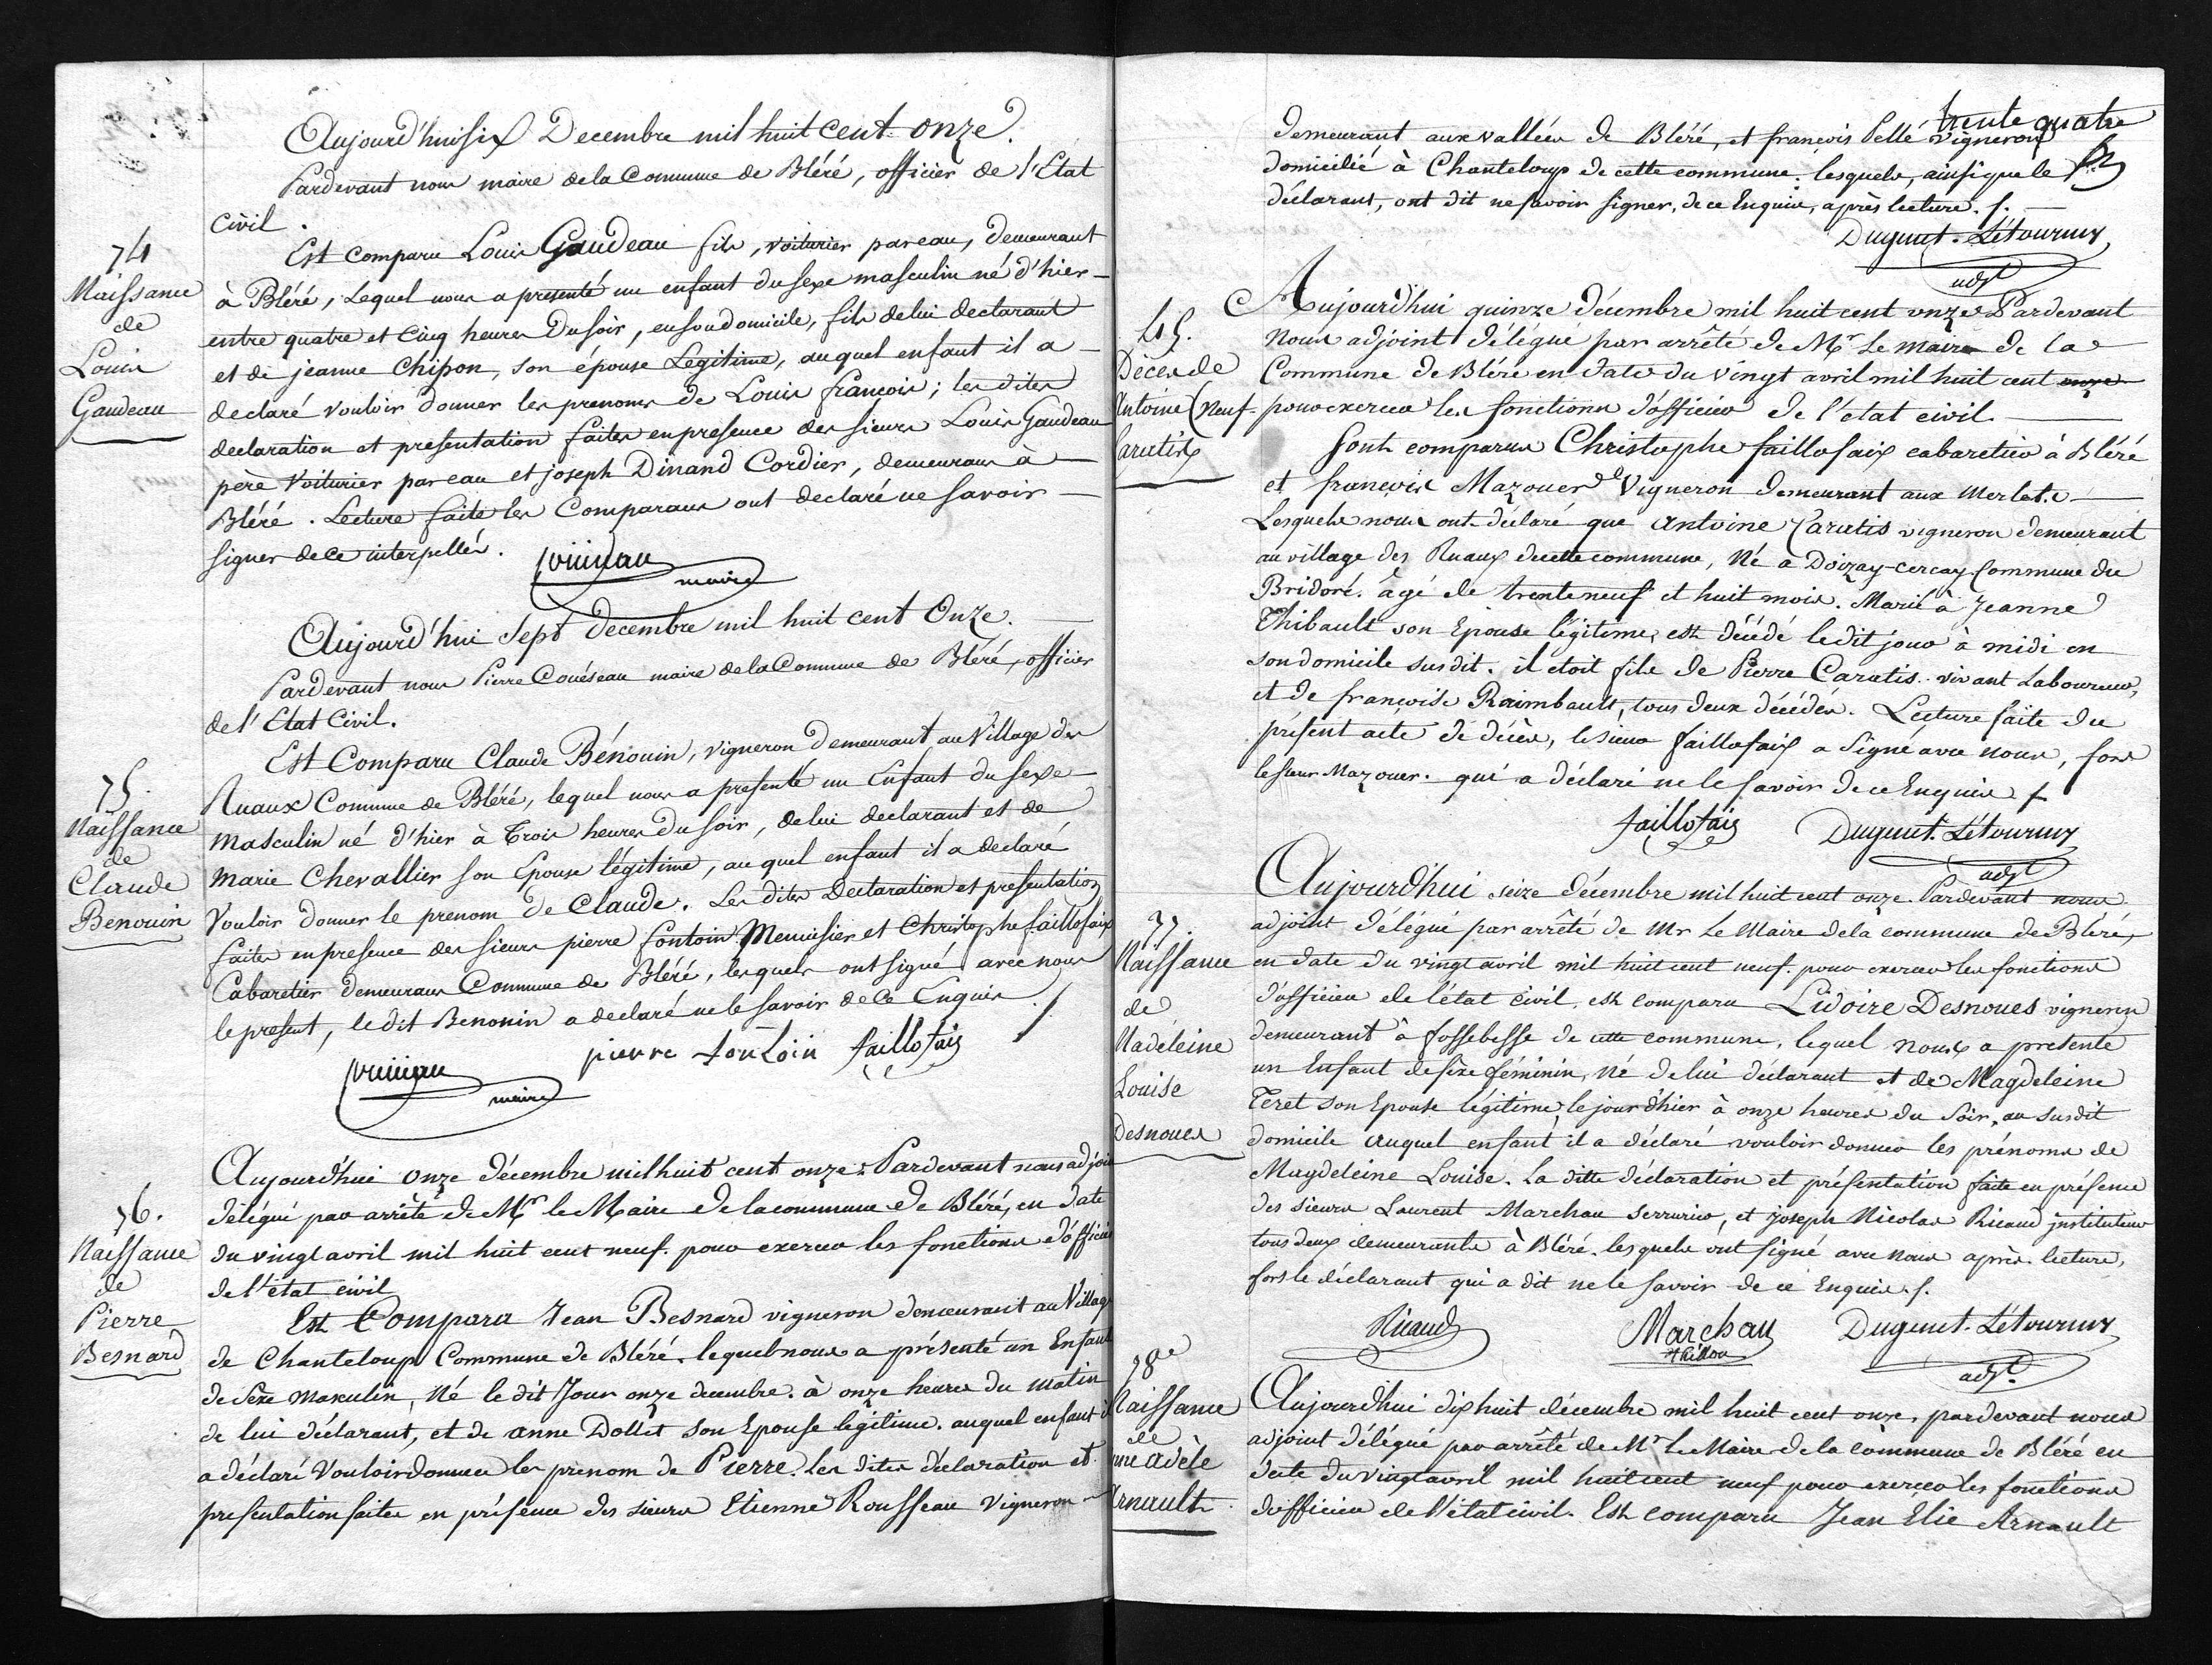 Aujourd'hui six Decembre mil huit cent onze.
Pardevant nous maire dela Commune de Bléré, officier de l'Etat
civil.
74
Naissance
de
Louis
Gaudeau
Est comparu Louis Gaudeau fils, voiturier par eau, demeurant
à Bléré, Lequel nous a presenté un enfant du sexe masculin né d'hier
entre quatre et Cinq heures Du soir, en son domicile, fils de lui declarant
et de jeanne Chipon, son épouse Legitime, auquel enfant il a
declaré vouloir donner les prenoms de Louis françois; les dites
declaration et presentation faites en presence des sieurs Louis Gaudeau
père Voiturier par eau et joseph Dinand Cordier, demeurans à
Bléré. Lecture faite les Comparans ont declaré ne savoir
signer de ce interpellés.
maire
Aujourd'hui Sept decembre mil huit cent Onze.
Pardevant nous Pierre Couéseau maire de la Commune de Bléré, officier
de l'Etat Civil.
75.
Naissance
de
Claude
Benouin
Est Comparu Claude Bénouin, Vigneron demeurant au Village des
Ruaux Commune de Bléré, lequel nous a presenté un Enfant du sexe
masculin né d'hier à Trois heures Du soir, de lui declarant et de
marie Chevallier son Epouse légitime, au quel enfant il a declaré
Vouloir donner le prenom de Claude. Les dites Declaration et presentation
faites en presence des sieurs pierre fontoin Menuisier et Christophe faillofaix
Cabaretier demeurans Commune de Bléré, lesquels ont signé avec nous
le present, le dit Benouin a declaré ne le savoir de Ce Enquis ./
pierre fontoin faillofais
maire
76.
Naissance
de
Pierre
Besnard
Aujourd'hui onze décembre mil huit cent onze. Pardevant nous adjoint
délégué par arrêté de Mr le Maire de la commune de Bléré, en date
du vingt avril mil huit cent neuf. pour exercer les fonctions d'officier
de l'état civil
Est Comparu Jean Besnard vigneron demeurant au Village
de Chanteloup Commune de Bléré. lequel nous a présenté un Enfant
de sexe masculin, Né le dit Jour onze decembre. à onze heures du matin
de lui déclarant, et de anne Dollet son Epouse legitime. auquel enfant il
a déclaré Vouloir donner les prenom de Pierre. les dites déclaration et
presentation faites en présence des sieurs Etienne Rousseau Vigneron
trente quatre
demeurant aux vallées de Bléré, et françois Pellé Vigneron
domicilié à Chanteloup de cette commune. lesquels, ainsi que le
déclarant, ont dit ne savoir signer, de ce Enquis, après lecture. /.
Duguet-Létourny
adjt
45.
Décès de
Antoine
Caratis
Aujourd'hui quinze décembre mil huit cent onze Pardevant
nous adjoint délégué par arrêté de Mr Le maire de la
Commune de Bléré en date du vingt avril mil huit cent onze
(neuf. pour exercer les fonctions d'officier de l'état civil
Sont comparus Christophe faillofaix cabaretier à Bléré
et françois Mazouer Vigneron demeurant aux Merlets.
Lesquels nous ont déclaré que Antoine Caratis vigneron demeurant
au village des Ruaux de cette commune, Né à Doizay-cercay Commune de
Bridoré. âgé de trente neuf et huit mois. Marié à Jeanne
Thibault son Epouse légitime, est décédé le dit jour à midi en
son domicile susdit. il etoit fils de Pierre Caratis. vivant Laboureur,
et de françoise Raimbault, tous deux décédés. Lecture faite du
présent acte de décès, le sieur faillofaix a Signé avec nous, fors
le sieur Mazouer. qui a déclaré ne le savoir de ce Enquis /
faillofais Duguet-Létourny
adjt
77.
Naissance
de
Madeleine
Louise
Desnoues
Aujourd'hui seize décembre mil huit cent onze. Pardevant nous
adjoint délégué par arrêté de Mr Le Maire de la commune de Bléré,
en date du vingt avril mil huit cent neuf. pour exercer les fonctions
d'officier de l'état civil, est comparu Lidoire Desnoues vigneron
demeurant à fossebesse de cette commune, lequel nous a presenté
un Enfant de sexe féminin, Né de lui déclarant et de Magdeleine
Teret son Epouse légitime, le jour d'hier à onze heures du Soir, au susdit
domicile auquel enfant il a déclaré vouloir donner les prénoms de
Magdeleine Louise. La ditte déclaration et présentation faite en présence
des sieurs Laurent Marchau serrurier, et Joseph Nicolas Ricaud instituteur
tous deux demeurants à Bléré. lesquels ont signé avec nous après. lecture,
fors le déclarant qui a dit ne le savoir de ce Enquis. /.
Ricaud Marchau Duguet-Létourny
adjt.
78e
Naissance
de
Adèle
Arnault
Aujourd'hui dix huit décembre mil huit cent onze, pardevant nous
adjoint délégué par arrêté de Mr Le Maire de la commune de Bléré en
date du vingt avril mil huit cent neuf pour exercer les fonctions
d'officier de l'état civil. Est comparu Jean Elie Arnault